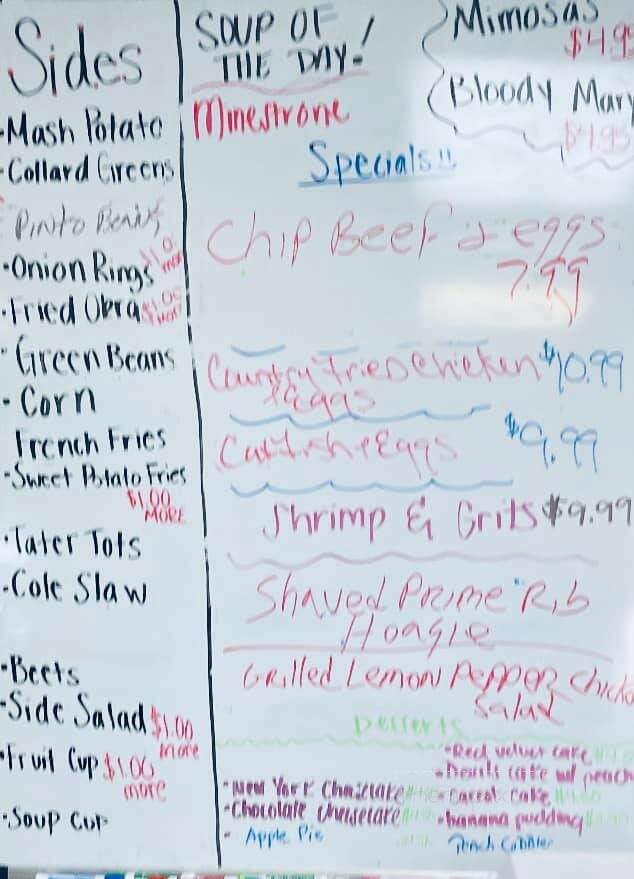 Sides
·Mash Potato
·Collard Greens
Pinto Beans
·Onion Rings
more
·Fried Okra $1.00
more
·Green Beans
·Corn
French Fries
·Sweet Potato Fries
$1.00
MORE
·Tater Tots
·Cole Slaw
·Beets
·Side Salad $1.00
more
·Fruit Cup $1.00
more
·Soup Cup
SOUP OF
THE DAY!
Minestrone
Mimosas
Bloody Mary
$4.95
Specials!!
Chip Beef & eggs
7.99
Country Fried Chicken $10.99
& Eggs
Catfish & Eggs $9.99
Shrimp & Grits $9.99
Shaved Prime Rib
Hoagie
Grilled Lemon Pepper
Salad
Desserts
·New York
·Chocolate
· Apple Pie
·Red velvet cake
cake w/ peach
·Carrot Cake
·banana pudding